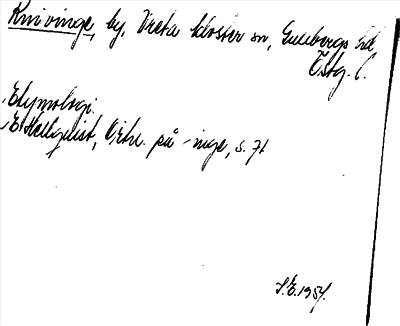 Knivinge, by, Vreta kloster sn, Gullbergs hd,
Östg. l.
Etymologi.
E Hellquist, Ortn. på -inge, s. 71
S.E. 1954.